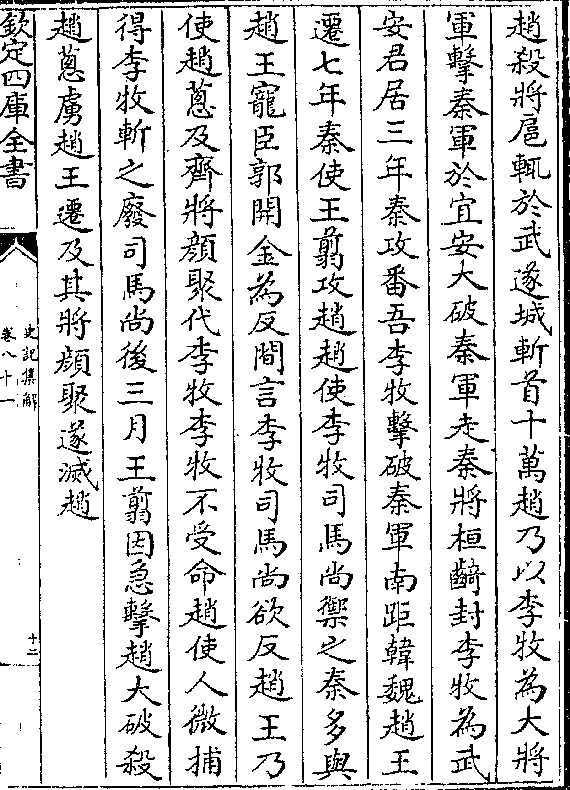 趙殺將扈輒於武遂城斬首十萬趙乃以李牧為大將
軍擊秦軍於宜安大破秦軍走秦將桓齮封李牧為武
安君居三年秦攻番吾李牧擊破秦軍南距韓魏趙王
遷七年秦使王翦攻趙趙使李牧司馬尚禦之秦多與
趙王寵臣郭開金為反間言李牧司馬尚欲反趙王乃
使趙蔥及齊將顔聚代李牧李牧不受命趙使人微捕
得李牧斬之廢司馬尚後三月王翦因急擊趙大破殺
趙蔥虜趙王遷及其將顔聚遂滅趙
欽定四庫全書
史記集解
卷八十一
十二